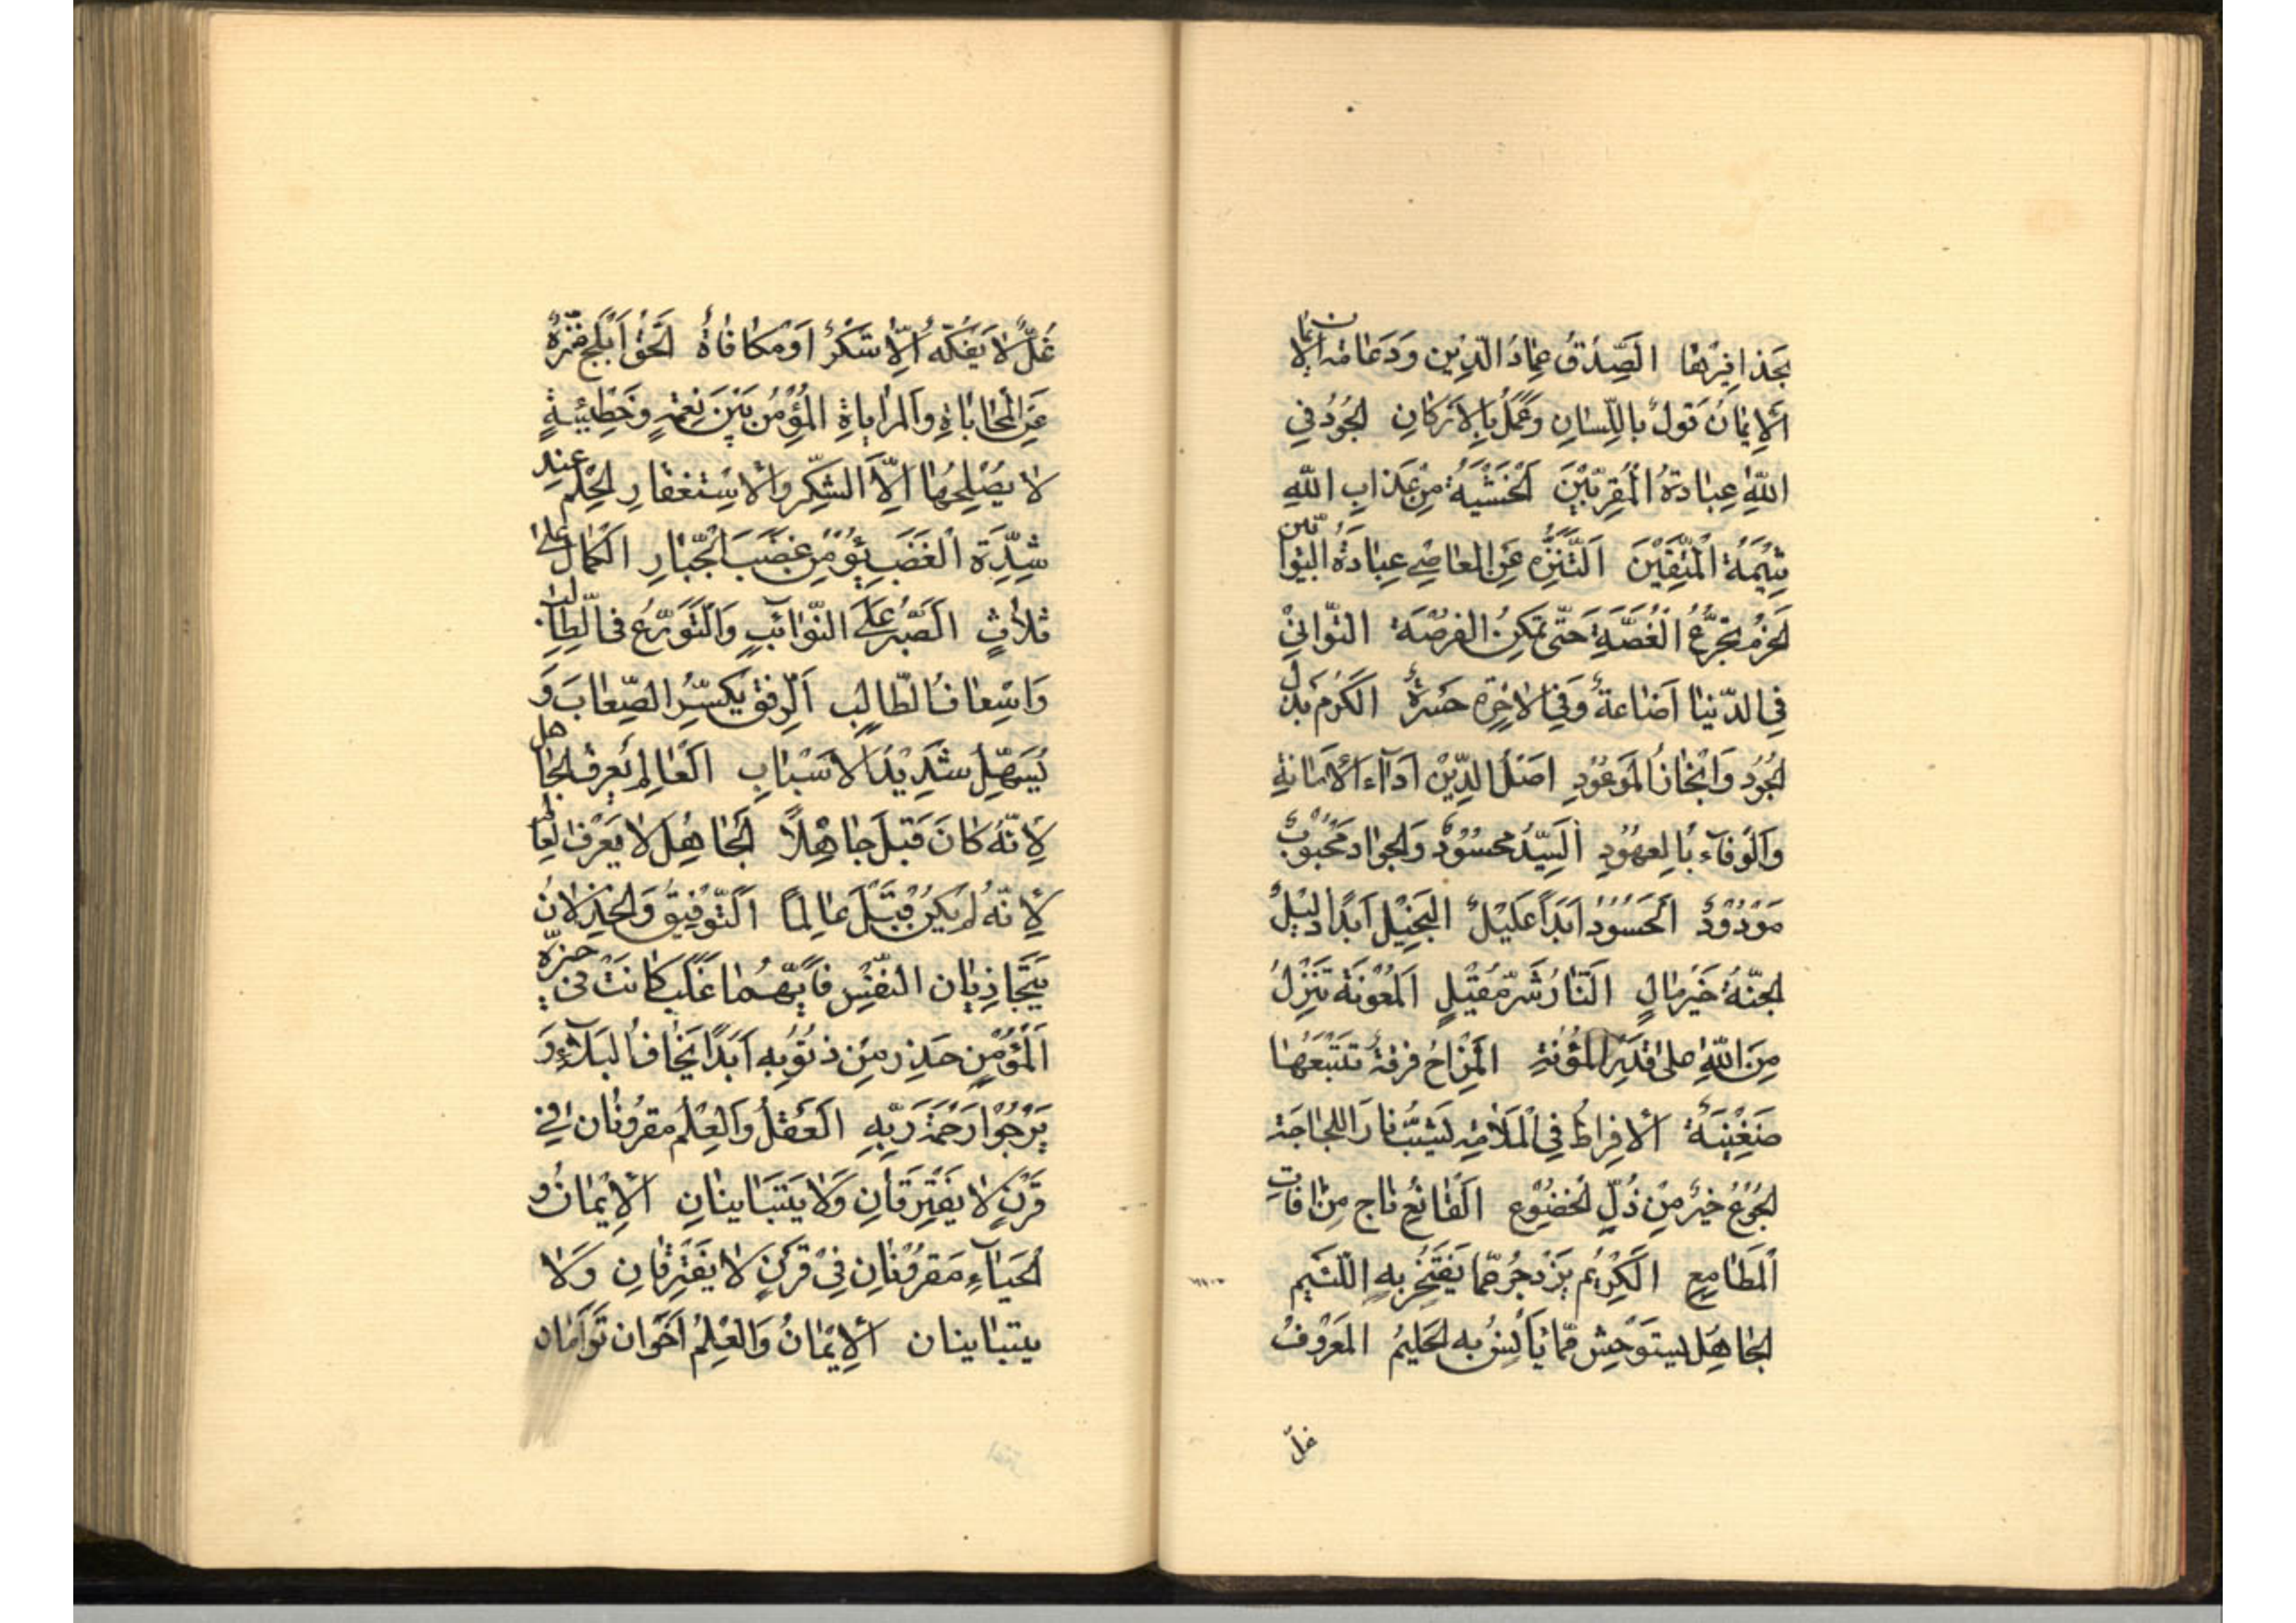 بحذافيرها الصّدق عماد الدّين ودعامة الايمان
الايمان قول باللّسان وعمل بالاركان الجود في
اللّه عبادة المقرّبين الخشية من عذاب اللّه
شيمة المتّقين التّنزّه عن المعاصي عبادة التّوّابين
الحزم تجرّع الغصّة حتّى تمكن الفرصة التّواني
في الدّنيا اضاعة وفي الاخرة حسرة الكرم بذل
الجود وانجاز الموعود اصل الدّين اداء الامانة
والوفاء بالعهود السّيّد محسود والجواد محبوب
مودود الحسود ابدا عليل البخيل ابدا ذليل
الجنّة خير مال النّار شرّ مقيل المعونة تنزل
من اللّه على قدر المؤنة المزاح فرقة تتبعها
ضغينة الافراط في الملامة يشبّ نار اللجاجة
الجوع خير من ذلّ الخضوع القانع ناج من افات
المطامع الكريم يزدجر ممّا يفتخر به اللّئيم
الجاهل يستوحش ممّا يأنس به الحليم المعروف
غلّ
غلّ لا يفكّه الّا شكر او مكافاة الحقّ ابلج منزّه
عن المحاباة والمراياة المؤمن بين نعمة وخطيئة
لا يصلحهما الّا الشّكر والاستغفار الحلم عند
شدّة الغضب يؤمن غضب الجبّار الكمال على
ثلاث الصّبر على النّوائب والتّورّع في المطالب
واسعاف الطّالب الرّفق ييسّر الصّعاب و
يسهّل شديد الاسباب العالم يعرف الجاهل
لانّه كان قبل جاهلا الجاهل لا يعرف العالم
لانّه لم يكن قبل عالما التّوفيق والخذلان
يتجاذبان النّفس فايّهما غلب كانت في حيّزه
المؤمن حذر من ذنوبه ابدا يخاف البلاء و
يرجوا رحمة ربّه العقل والعلم مقرونان في
قرن لا يفترقان ولا يتباينان الايمان و
الحياء مقرونان في قرن لا يفترقان ولا
يتباينان الايمان والعلم اخوان توأمان